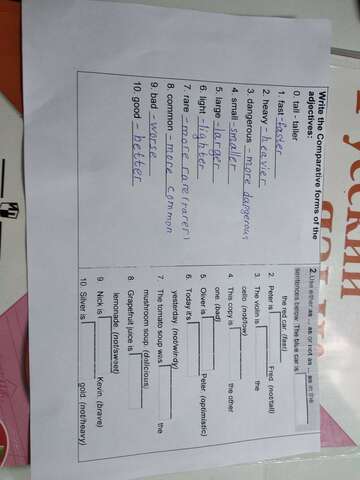 Write the Comparative forms of the
adjectives:
0. tall - taller
1. fast - faster
2. heavy - heavier
3. dangerous - more dangerous
4. small - smaller
5. large - larger
6. light - lighter
7. rare - more rare (rarer)
8. common - more common
9. bad - worse
10. good - better
2. Use either as ... as or not as ... as in the
sentences below. The blue car is
the red car. (fast)
2. Peter is Fred. (not/tall)
3. The violin is the
cello. (not/low)
4. This copy is the other
one. (bad)
5. Oliver is Peter. (optimistic)
6. Today it's
yesterday. (not/windy)
7. The tomato soup was the
mushroom soup. (delicious)
8. Grapefruit juice is
lemonade. (not/sweet)
9. Nick is Kevin. (brave)
10. Silver is gold. (not/heavy)
русский